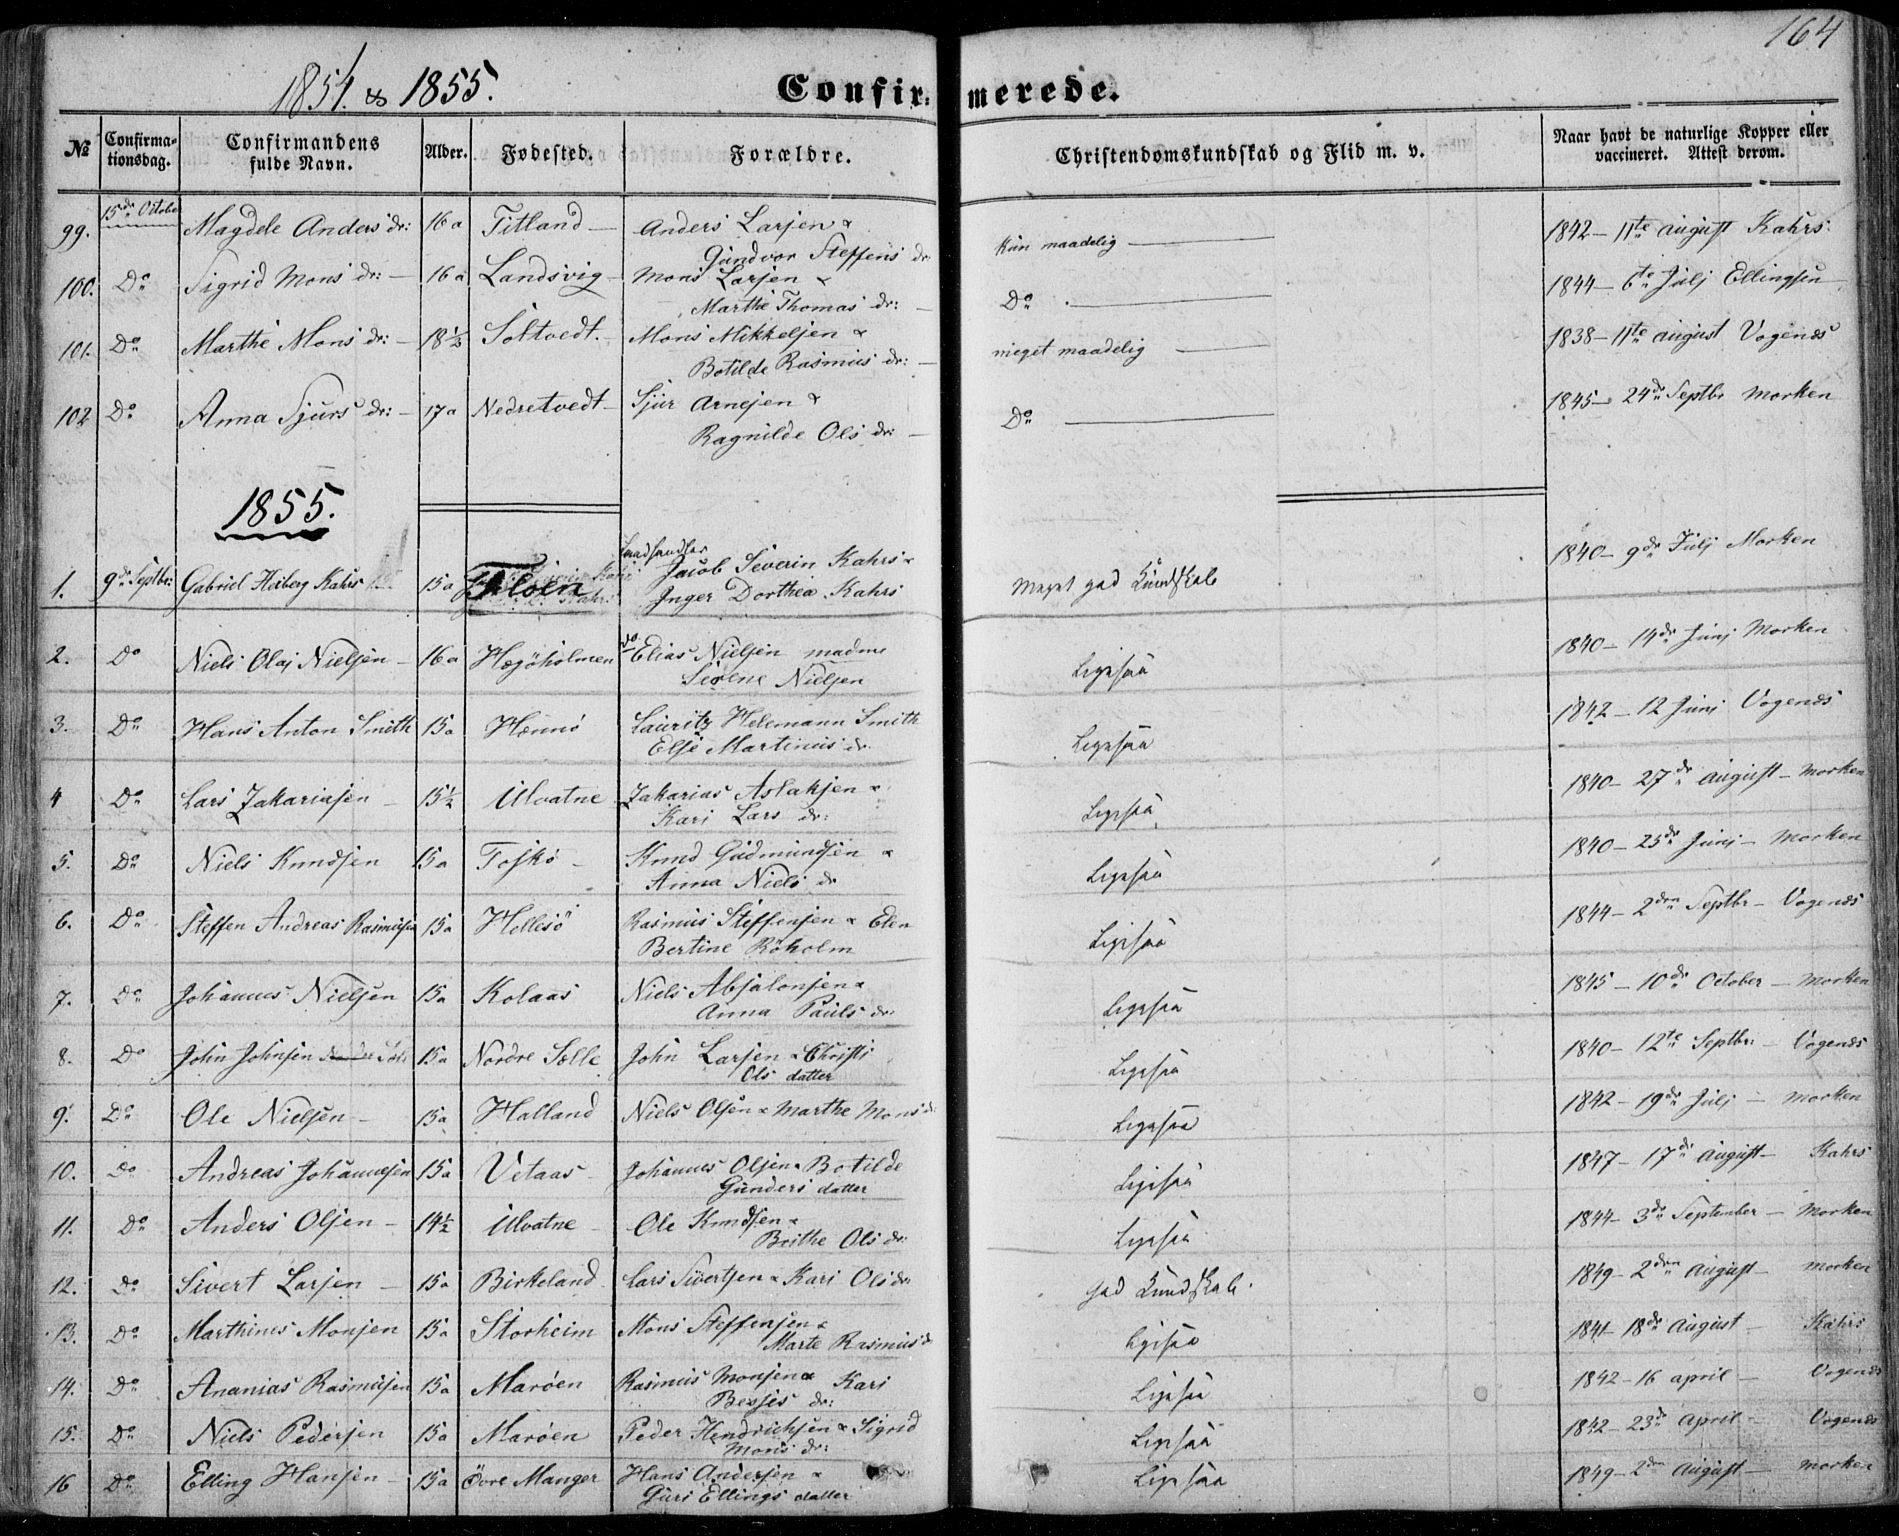 164
1854 & 1855.
Confirmerede.
№ Confirmationsdag. Confirmandens fulde Navn. Alder. Fødested. Forældre. Christendomskundskab og Flid m. v. Naar havt de naturlige Kopper eller vaccineret. Attest derom.
99. 15de Octobe Magdele Anders dr: 16 a Titland Anders Larsen & Kun maadelig 1842 – 11te august Kahrs.
Gundvor Steffens dr
100. Do Sigrid Mons dr: 16 a Landsvig Mons Larsen & Do 1844 – 6te Julj Ellingsen
Marthe Thomas dr:
101. Do Marthe Mons dr: 18½ Soltvedt. Mons Mikkelsen & meget maadelig 1838 – 11te august Vogenes
Botilde Rasmus dr:
102 Do Anna Sjurs dr: 17 a Nedretvedt Sjur Arnesen & Do 1845 – 24de Septbr Morken
Ragnilde Ols dr:
1855.
1. 9de Septbr: Gabriel Heiberg Kahrs 15 a Floen Landhandler Jacob Severin Kahrs & Meget god Kundskab 1840 – 9de Julj Morken
Inger Dorthea Kahrs
2. Do Niels Olai Nielsen 16 a Hægøholmen do Elias Nielsen madme Ligesaa 1840 – 14de Junj Morken
Nielsen
3. Do Hans Anton Smith 15 a Hennø Lauritz Smith Ligesaa 1842 – 12 Junj Vogenes
Elsje Martinus dr
4 Do Lars Zakariasen 15½ Ulvatne Zakarias Aslaksen & Ligesaa 1840 – 27de august – Morken
Kari Lars dr:
5. Do Niels Knudsen 15 a Foskø Knud Gudmundsen & Ligesaa 1840 – 25de Junj – Morken
Anna Niels dr
6. Do Steffen Andreas Rasmusen 15 a Hollesø Rasmus Steffensen & Elen Ligesaa 1844 – 2den Septbr – Vogenes
Bertine Røholm
7. Do Johannes Nielsen 15 a Kolaas Niels Absalonsen & Ligesaa 1845 – 10de October – Morken
Anna Pauls dr
8. Do John Johnsen 15 a Nordre Sælle John Larsen & Christi Ligesaa 1840 – 12te Septbr: – Vogenes
Ols datter
9. Do Ole Nielsen 15 a Halland Niels Olsen & Marthe Mons dr Ligesaa 1842 – 19de Julj – Morken
10. Do Andreas Johannesen 15 a Vetaas Johannes Olsen & Botilde Ligesaa 1847 – 17de August – Kahrs
Gunders datter
11. Do Anders Olsen 14½ Ulvatne Ole Knudsen & Ligesaa 1844 – 3de September – Morken
Brithe Ols dr:
12. Do Sivert Larsen 15 a Birkeland Lars Sivertsen & Kari Ols dr god Kundskab. 1849 – 2den August – Morken
13. Do Marthines Monsen 15 a Storheim Mons Steffensen & Ligesaa 1841 – 18de August – Kahrs
Marte Rasmus dr
14. Do Ananias Rasmusen 15 a Marøen Rasmus Monsen & Kari Ligesaa 1842 – 16 april – Vogenes
Besjes dr:
15. Do Niels Pedersen 15 a Marøen Peder Hendricksen & Sigrid Ligesaa 1842 – 23de April – Vogenes
Mons dr:
16 Do Elling Hansen 15 a Øvre Manger Hans Andersen & Ligesaa 1849 – 2den August – Morken
Guri Ellings datter